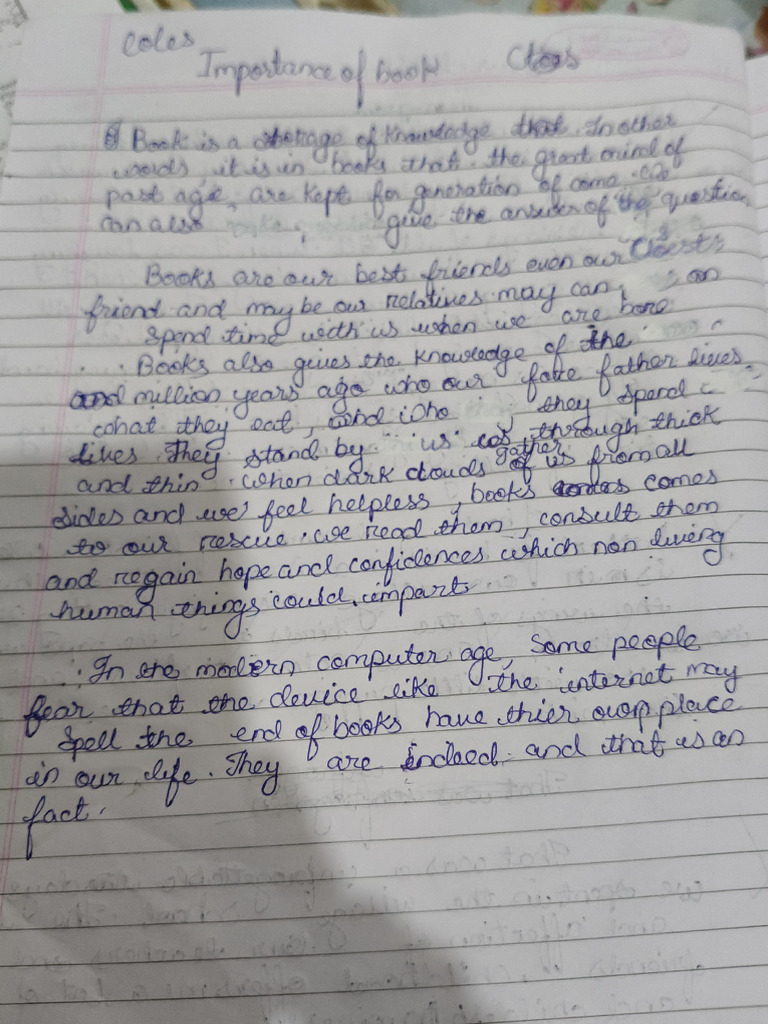 coles
Importance of book
Book is a storage of knowledge that In other
words, it is in books that the great mind of
past age, are kept for generation of come. we
can also give the answer of the question
Books are our best friends even our closest
friend and maybe our relatives may can
spend time with us when we are bore
Books also gives the knowledge of the
and million years ago who our fore father lives
what they eat, and who they spend
lives They stand by us as through thick
and thin. when dark clouds gather of us from all
sides and we feel helpless, books comes
to our rescue. we read them, consult them
and regain hope and confidences which non living
human things could impart
In the modern computer age, some people
fear that the device like the internet may
spell the end of books have thier own place
in our life. They are indeed and that is an
fact.